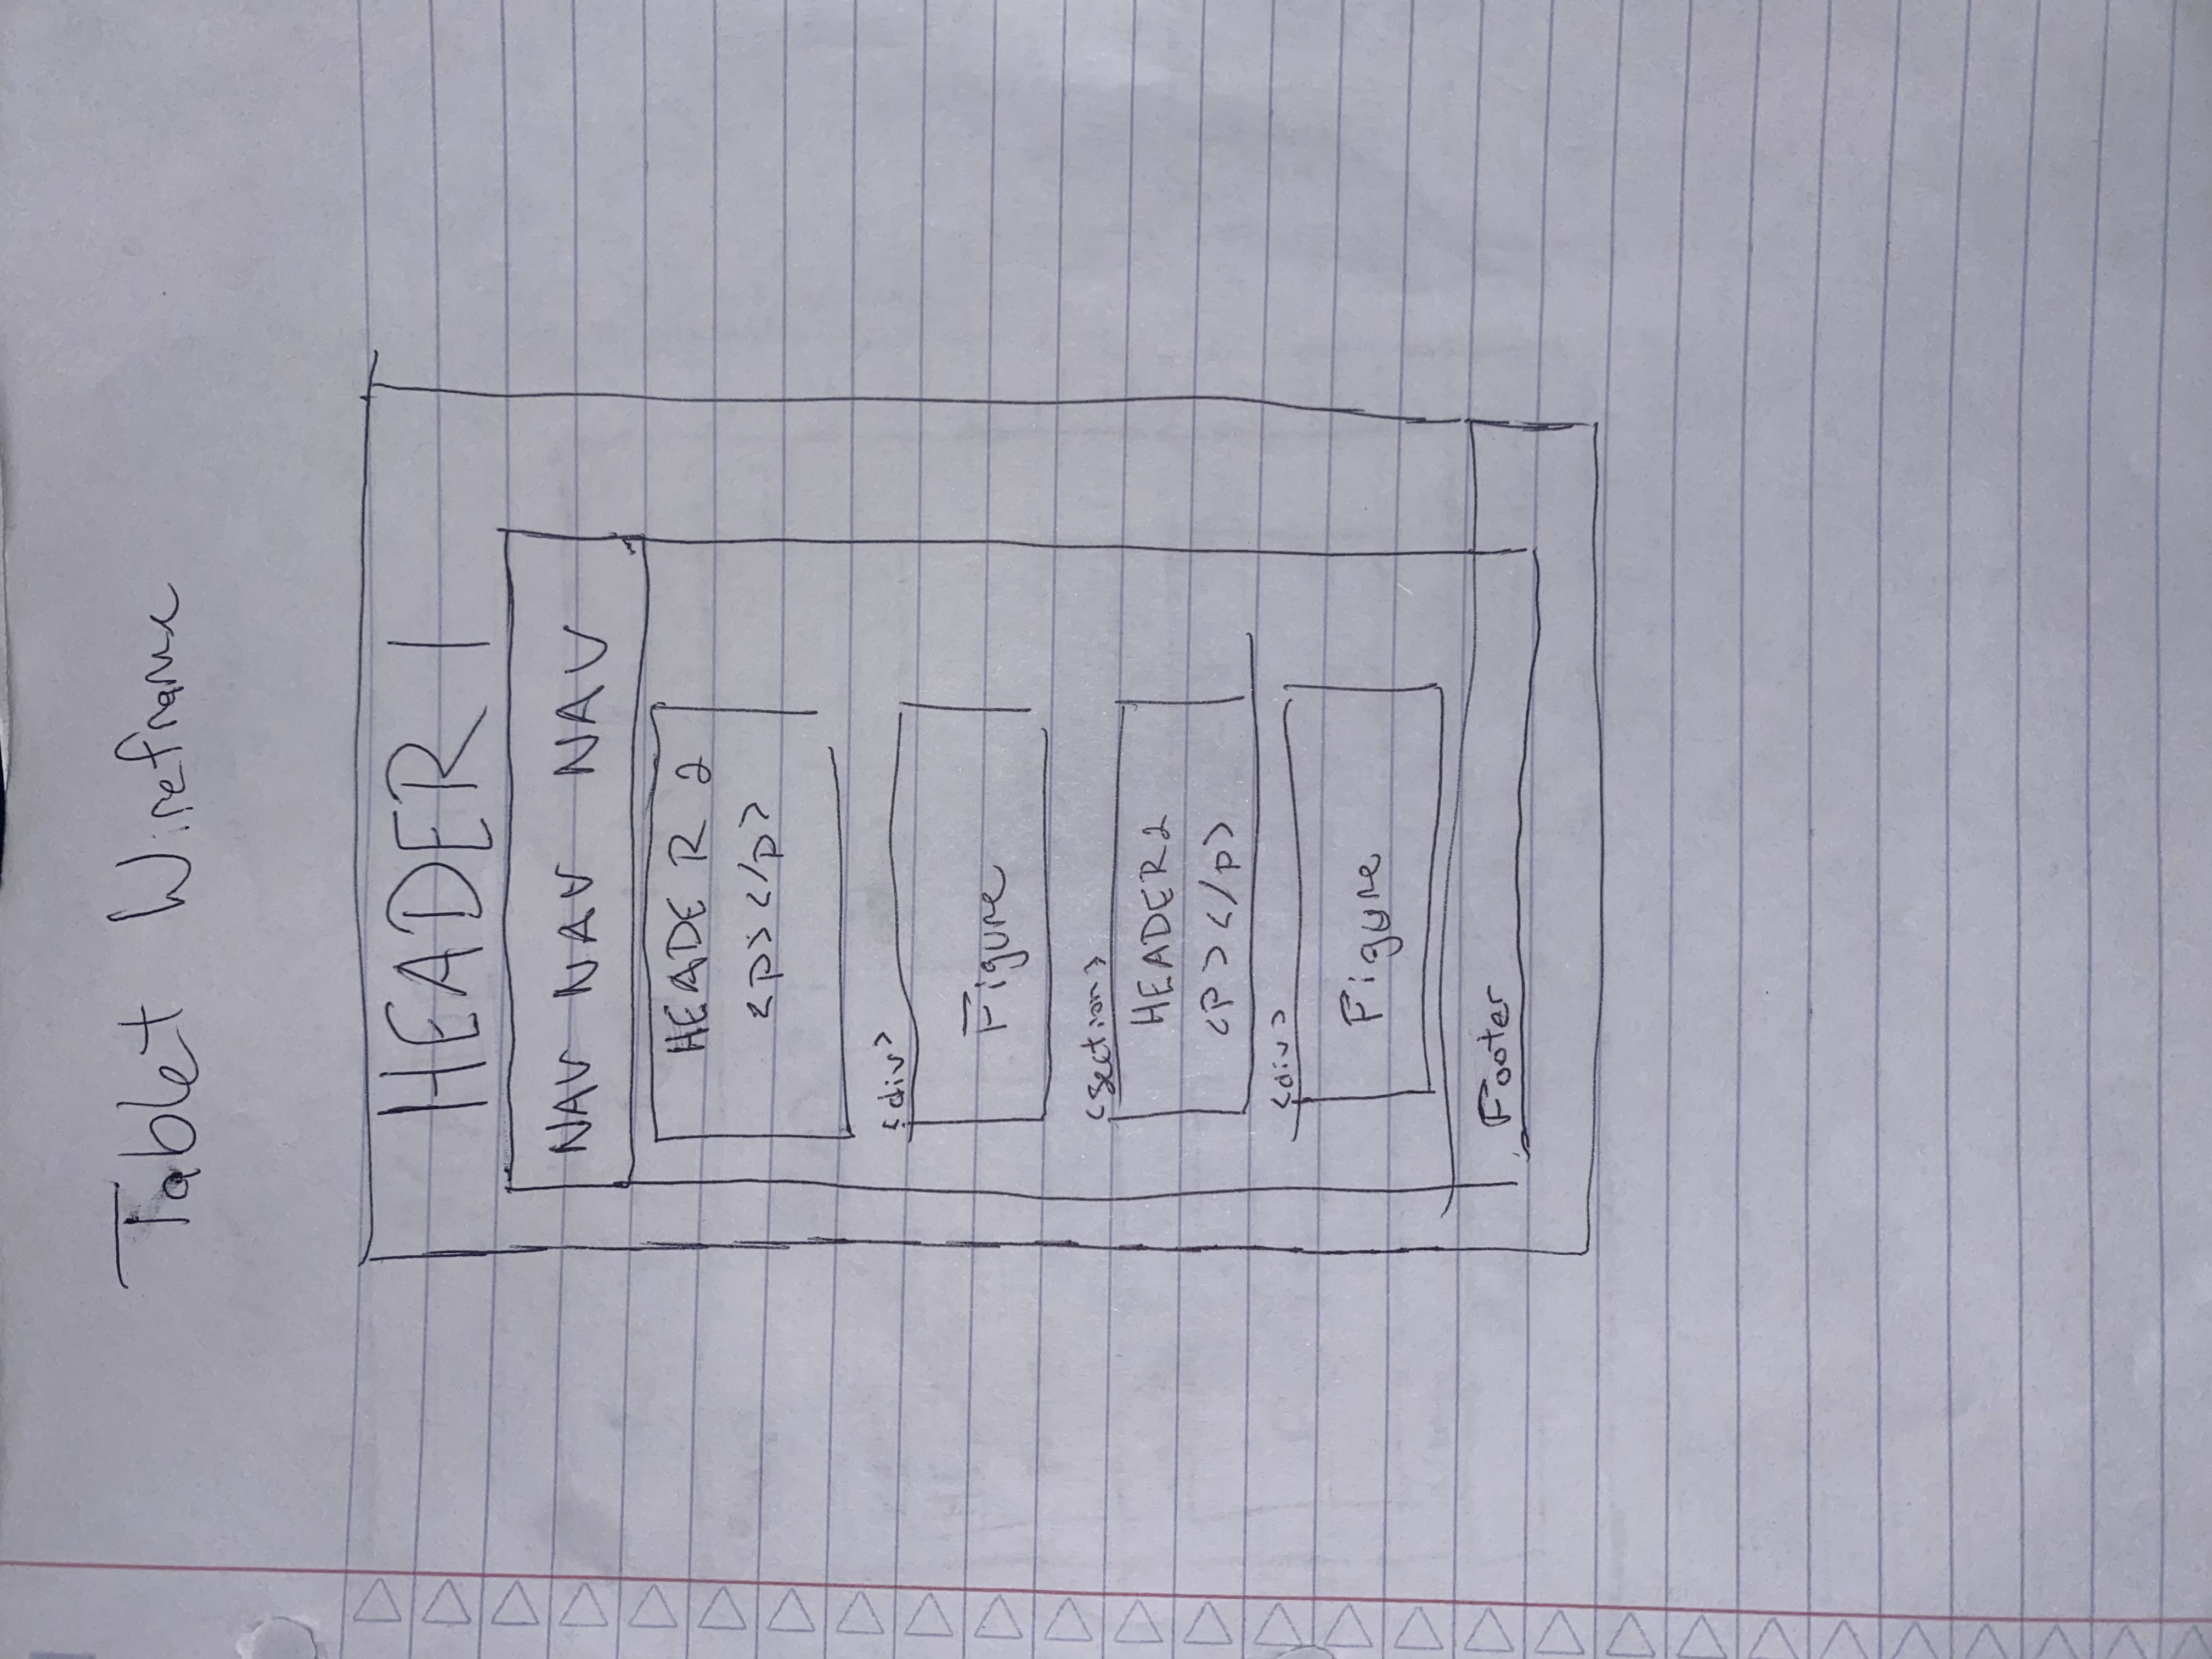 Tablet Wireframe
HEADER 1
NAV NAV NAV
HEADER 2
<p></p>
<div>
Figure
<section>
HEADER 2
<p></p>
<div>
Figure
Footer